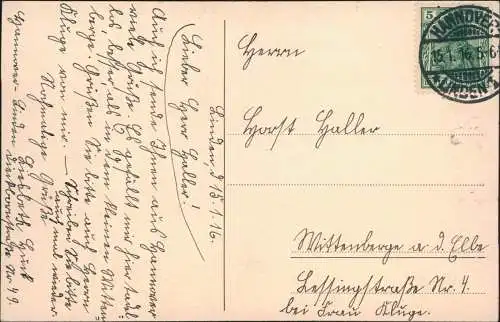 Linden, d. 15.1.16.
Lieber Herr Haller!
Auch ich sende Ihnen aus Hannover
viele Grüße. Es gefällt mir hier tadel
los, besser als in dem kleinen Witten
berge. Grüßen Sie bitte auch Herrn
Kluge von mir. — Schreiben Sie bitte
auch mal wieder.
Nochmalige Grüße
Elisabeth
Hannover-Linden
Nr. 49.
Herrn
Horst Haller
Wittenberge a. d. Elbe
Lessingstraße Nr. 4.
bei Frau Kluge.
5
HANNOVER
15.1.16.
LINDEN